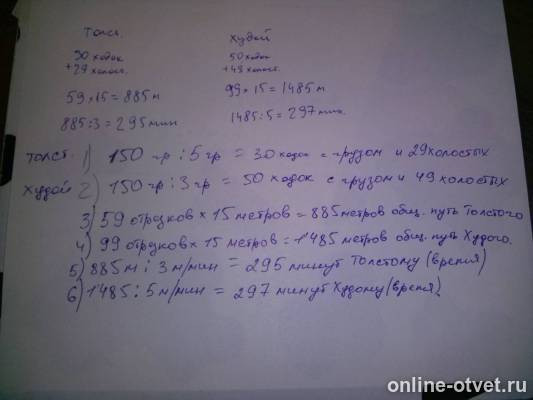 Толст.
Худой
30 ходок
50 ходок
+29 холост.
+49 холост.
59 × 15 = 885 м
99 × 15 = 1485 м
885 : 3 = 295 мин
1485 : 5 = 297 мин.
Толст. 1) 150 гр : 5 гр = 30 ходок с грузом и 29 холостых
Худой 2) 150 гр : 3 гр = 50 ходок с грузом и 49 холостых
3) 59 отрезков × 15 метров = 885 метров общ. путь Толстого
4) 99 отрезков × 15 метров = 1485 метров общ. путь Худого.
5) 885 м : 3 м/мин = 295 минут Толстому (время)
6) 1485 : 5 м/мин = 297 минут Худому (время).
online-otvet.ru